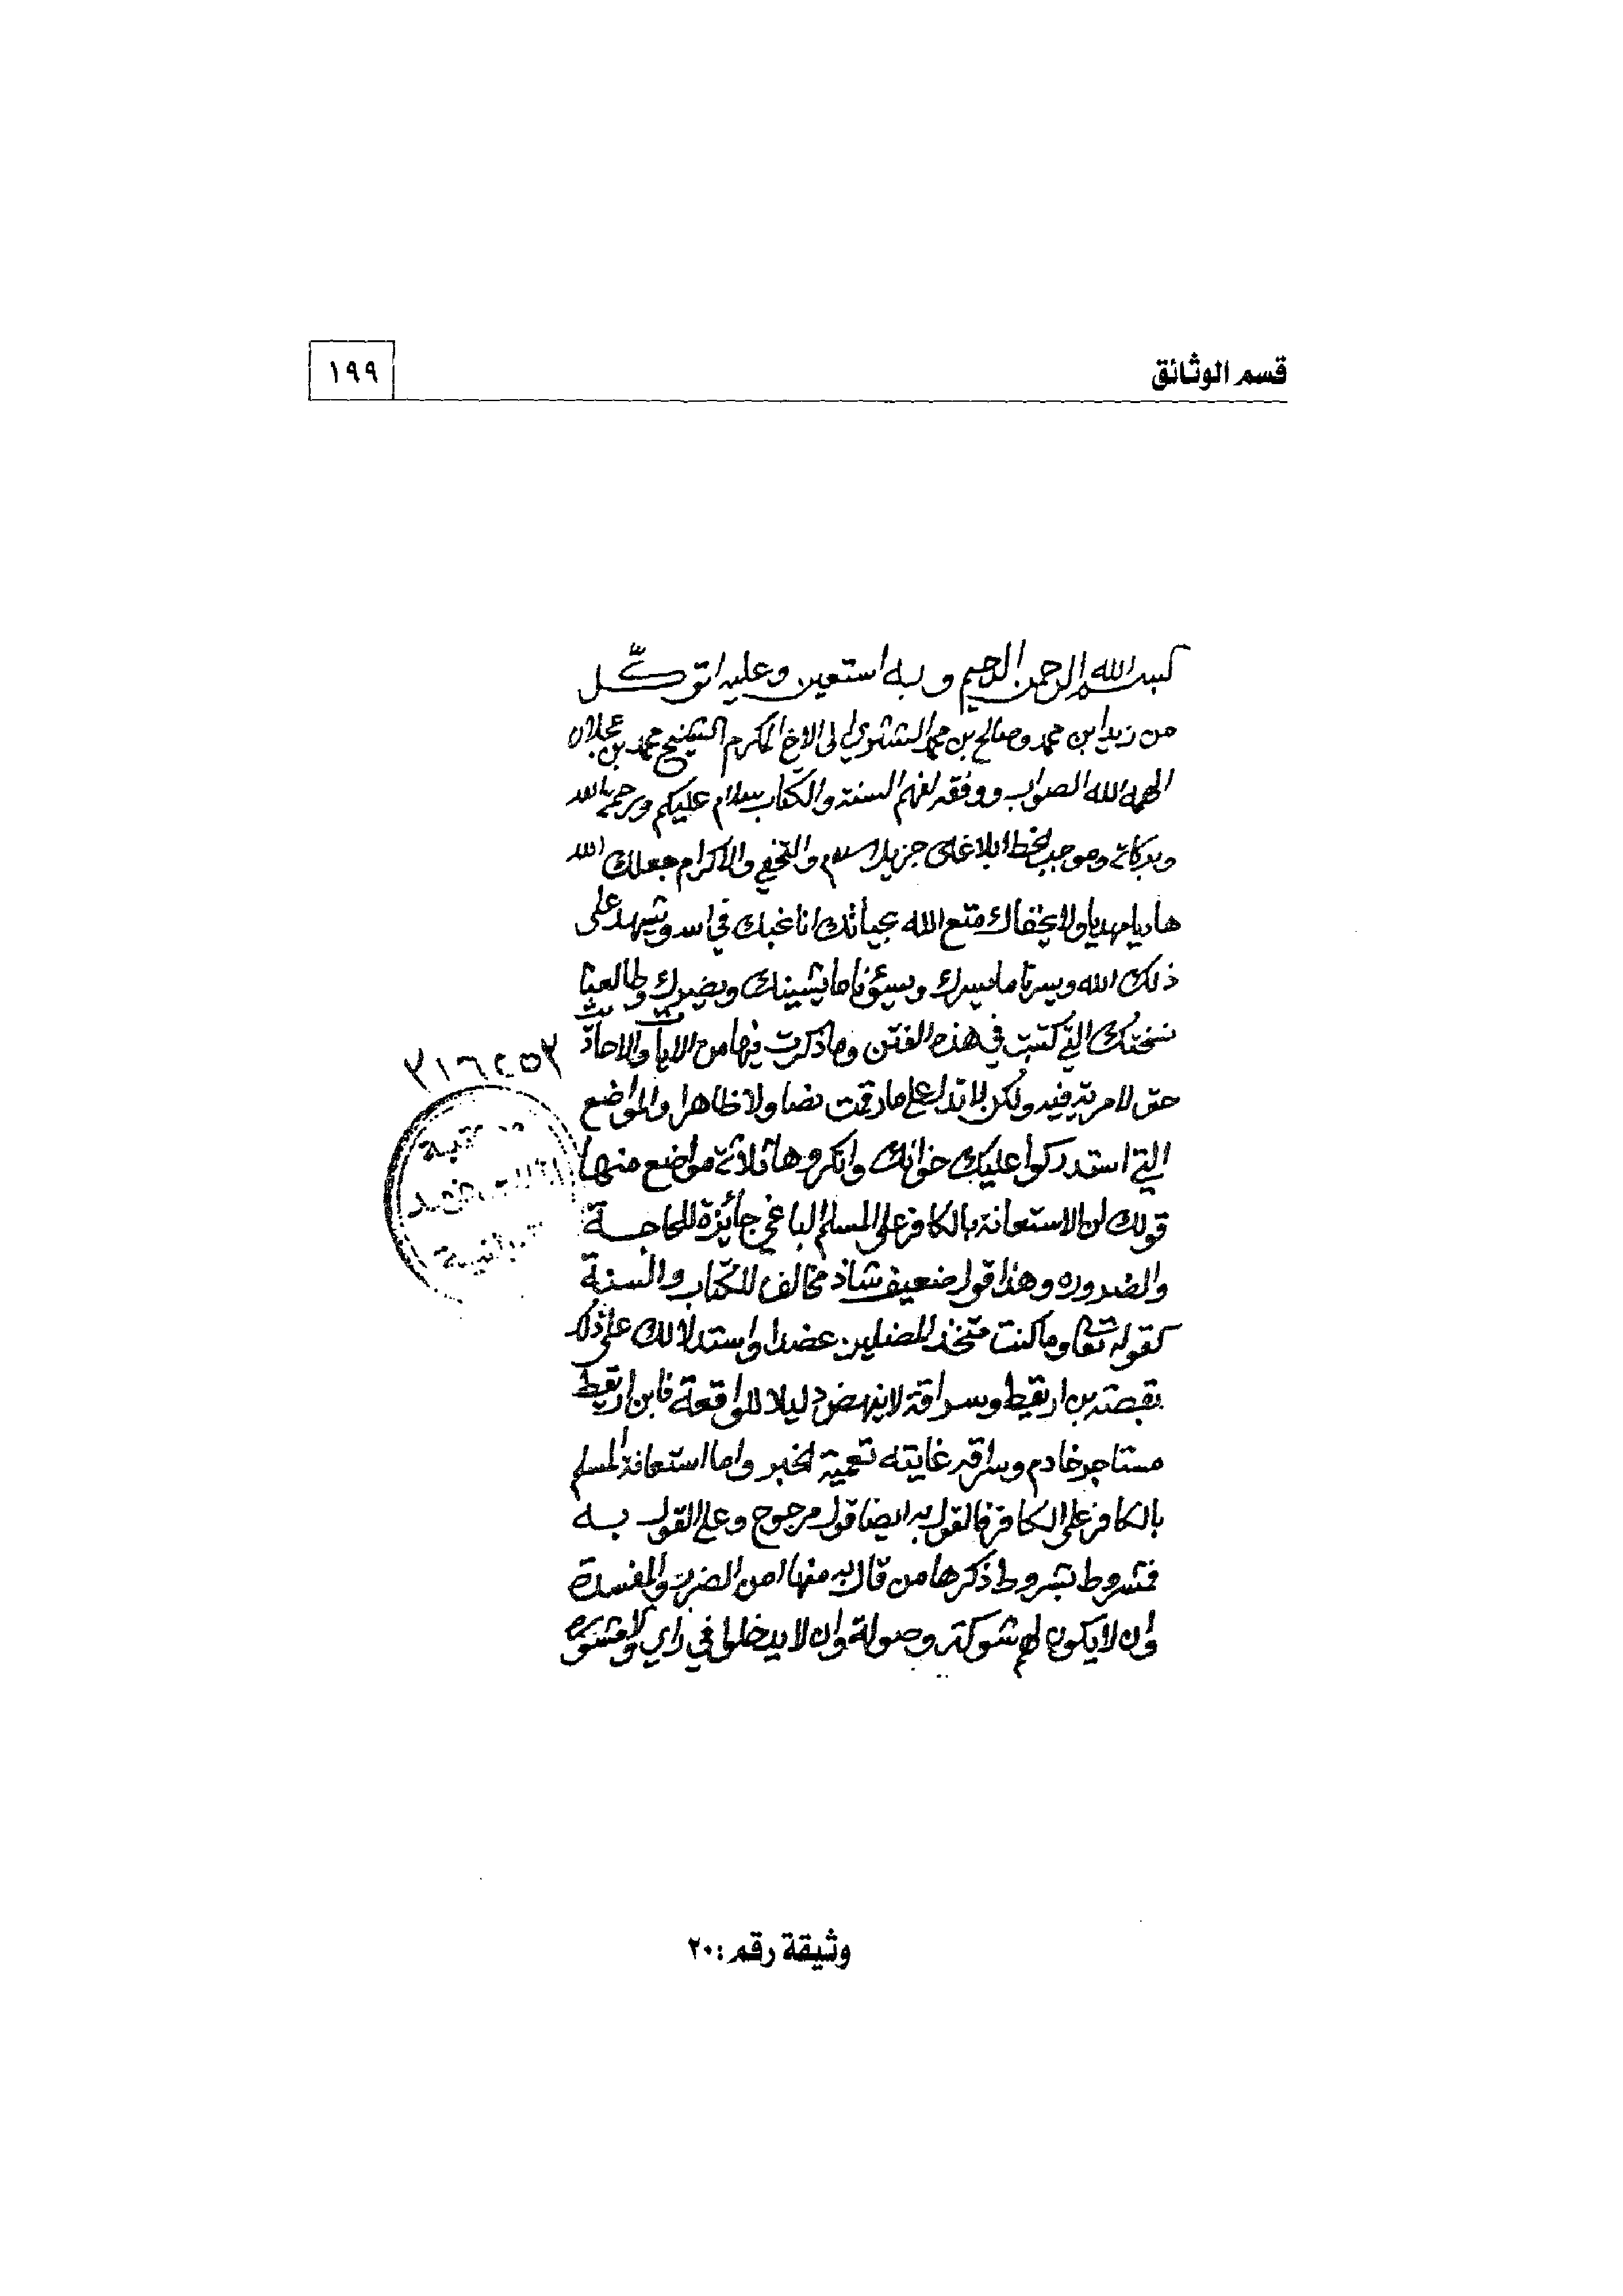 قسم الوثائق
١٩٩
بسم الله الرحمن الرحيم وبه استعين وعليه اتوكل
من زيد ابن محمد وصالح بن محمد الشثري الى الاخ المكرم الشيخ محمد بن عجلان
الهمه الله الصواب ووفقه لفهم السنة والكتاب سلام عليكم ورحمة الله
وبركاته وموجب الخط ابلاغك جزيل السلام والتحفي والاكرام جعلك الله
هاديا مهديا ولا يخفاك متع الله بحياتك انا نحبك في الله ويشهد على
ذلك الله ويسرنا ما يسرك ويسؤنا ما يشينك ويضرك وطالعنا
نسختك التي كتبت في هذه الفتن وما ذكرت فيها من الايات والاحاديث
حق لا مرية فيه ولكن لا تدل على ما رقمت نصا ولا ظاهرا والمواضع
التي استدركوا عليك خوانك وانكروها ثلاثة مواضع منها
قولك ان الاستعانة بالكافر على المسلم الباغي جائزة للحاجة
والضروره وهذا قول ضعيف شاذ مخالف للكتاب والسنة
كقوله تعا وما كنت متخذ المضلين عضدا واستدلالك على ذلك
بقصة بن اريقط وسراقة لا ينهض دليلا للواقعة فابن اريقط
مستاجر خادم وسراقه غايته تعمية الخبر واما استعانة المسلم
بالكافر على الكافر فالقول به ايضا قول مرجوح وعلى القول به
فمشروط بشروط ذكرها من قال به منها امن الضرر والمفسدة
وان لا يكون لهم شوكة وصولة وان لا يدخلوا في راي ولا مشوره
٣١٦٤٥٢
مكتبة
وثيقة رقم: ٢٠